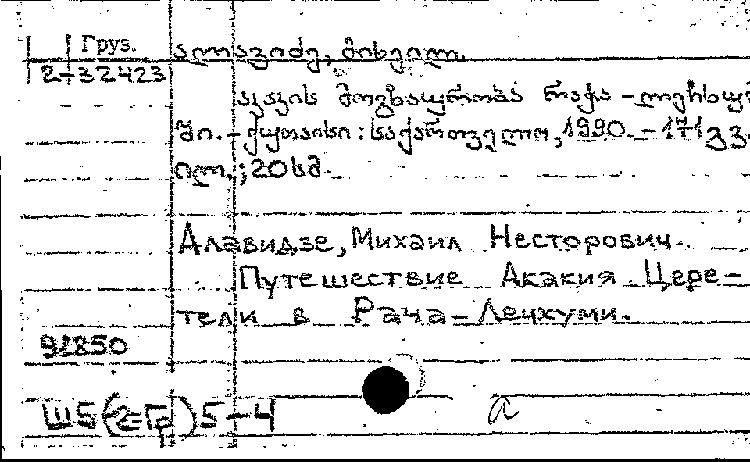 Груз.
2-32423
ალავიძე, მიხეილ.
აკაკის მოგზაურობა რაჭა-ლეჩხუმ
ში. - ქუთაისი : საქართველო, 1990. - 171 გვ.
ილ. ; 20 სმ.
Алавидзе, Михаил Несторович.
Путешествие Акакия Цере-
тели в Рача-Лечхуми.
91850
Ш5(2=Гр)5-4
а